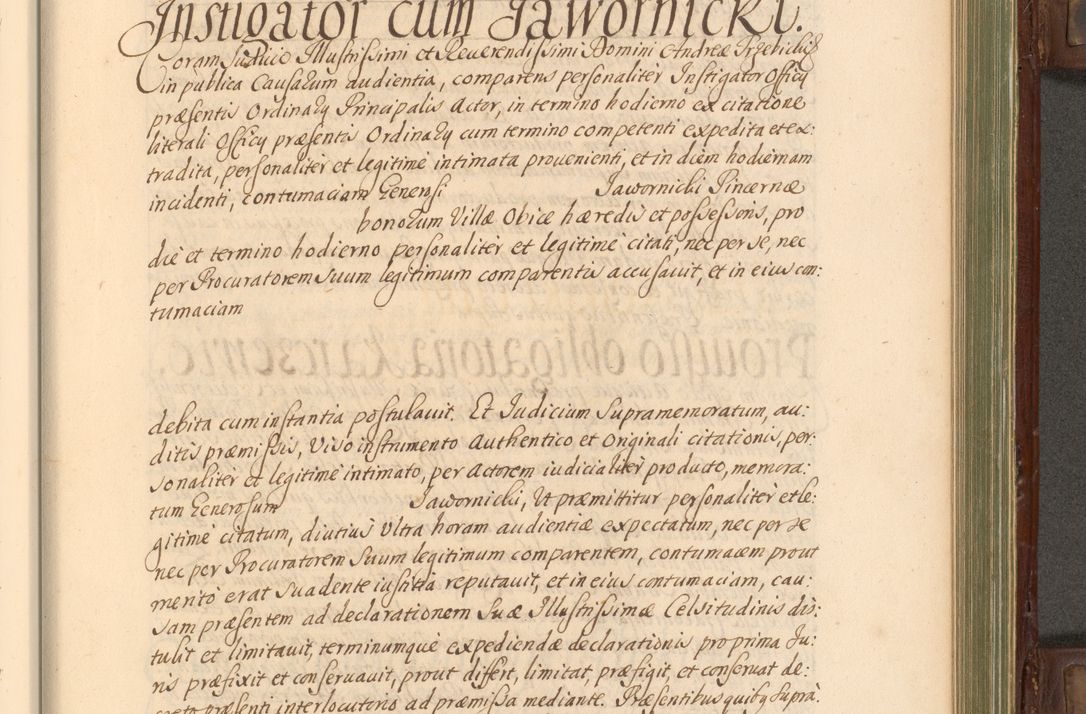 Instigator cum Jawornicki.
Coram Judicio Illustrissimi et Reverendissimi Domini Andreæ Trzebicki
in publica Causarum audientia, comparens personaliter Instigator Officij
præsentis Ordinarij Principalis Actor, in termino hodierno ex citatione
literali Officij præsentis Ordinarij cum termino competenti expedita et ex:
tradita, personaliter et legitimè intimata provenienti, et in diem hodiernam
incidenti, contumaciam Generosi Jawornicki Pincernæ
bonorum Villæ Obice hæredis et possessoris, pro
die et termino hodierno personaliter et legitime citati, nec per se, nec
per Procuratorem suum legitimum comparentis accusavit, et in eius con:
tumaciam
debita cum instantia postulavit. Et Judicium Supramemoratum, au:
ditis præmissis, Viso instrumento Authentico et Originali citationis, per:
sonaliter et legitimè intimato, per Actorem iudicialiter producto, memora:
tum Generosum Jawornicki, Ut præmittitur personaliter et le:
gitimè citatum, diutius Ultra horam audientiæ expectatum, nec per se
nec per Procuratorem Suum legitimum comparentem, contumacem prout
meritò erat Suadente iustitia reputavit, et in eius contumaciam, cau:
sam præsentem ad declarationem Suæ Illustrissimæ Celsitudinis dis:
tulit et limitavit, terminumquè expediendæ declarationis pro prima Ju:
ris præfixit et conservavit, prout differt, limitat, præfigit, et conservat de:
creto præsenti interlocutorio ad præmissa mediante. Præsentibus quibq Suprà.